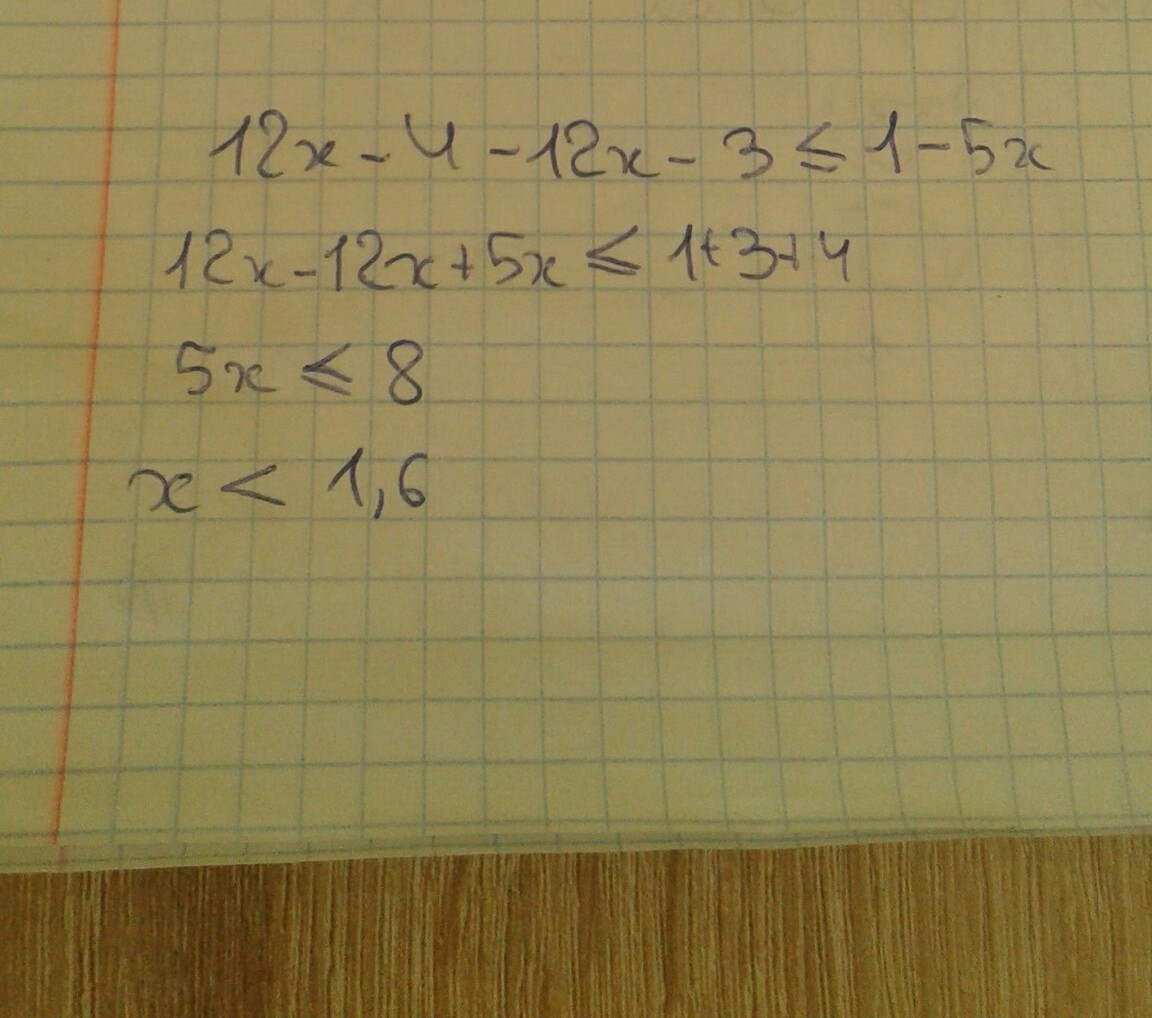 12x - 4 - 12x - 3 ≤ 1 - 5x
12x - 12x + 5x ≤ 1 + 3 + 4
5x ≤ 8
x < 1,6